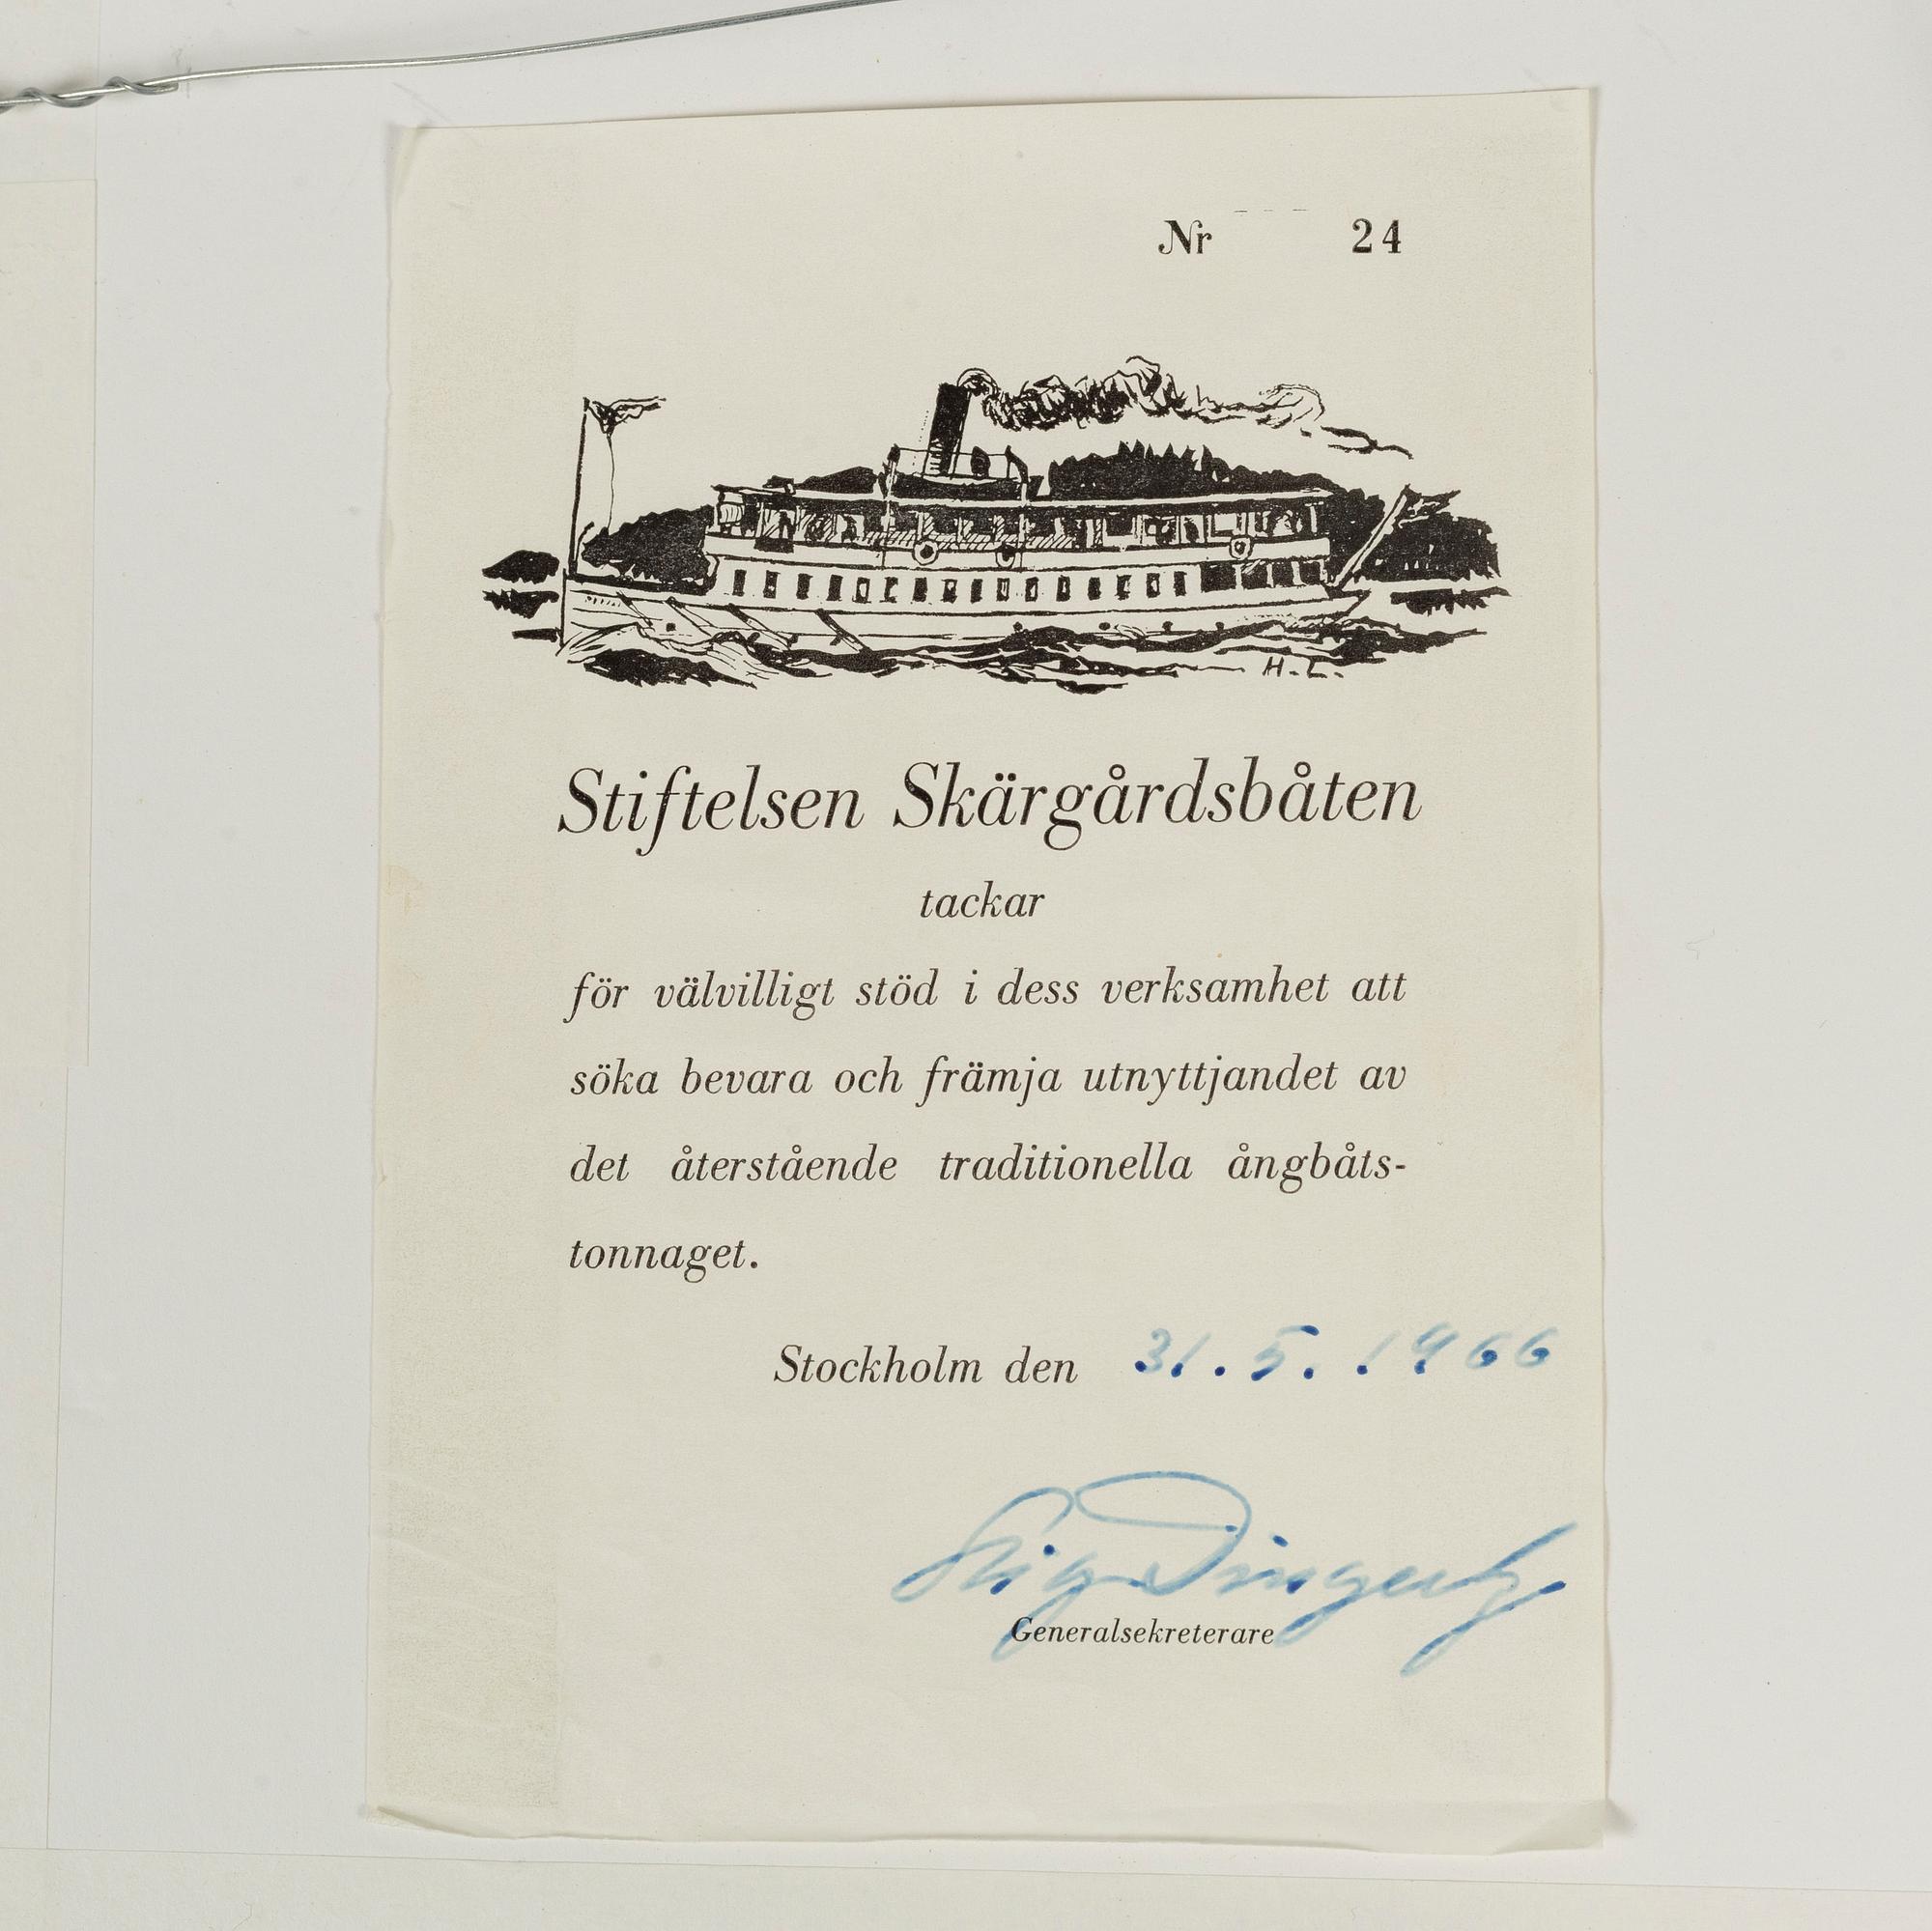 Nr 24
H.L.
Stiftelsen Skärgårdsbåten
tackar
för välvilligt stöd i dess verksamhet att
söka bevara och främja utnyttjandet av
det återstående traditionella ångbåts-
tonnaget.
Stockholm den 31.5.1966
Stig
Generalsekreterare